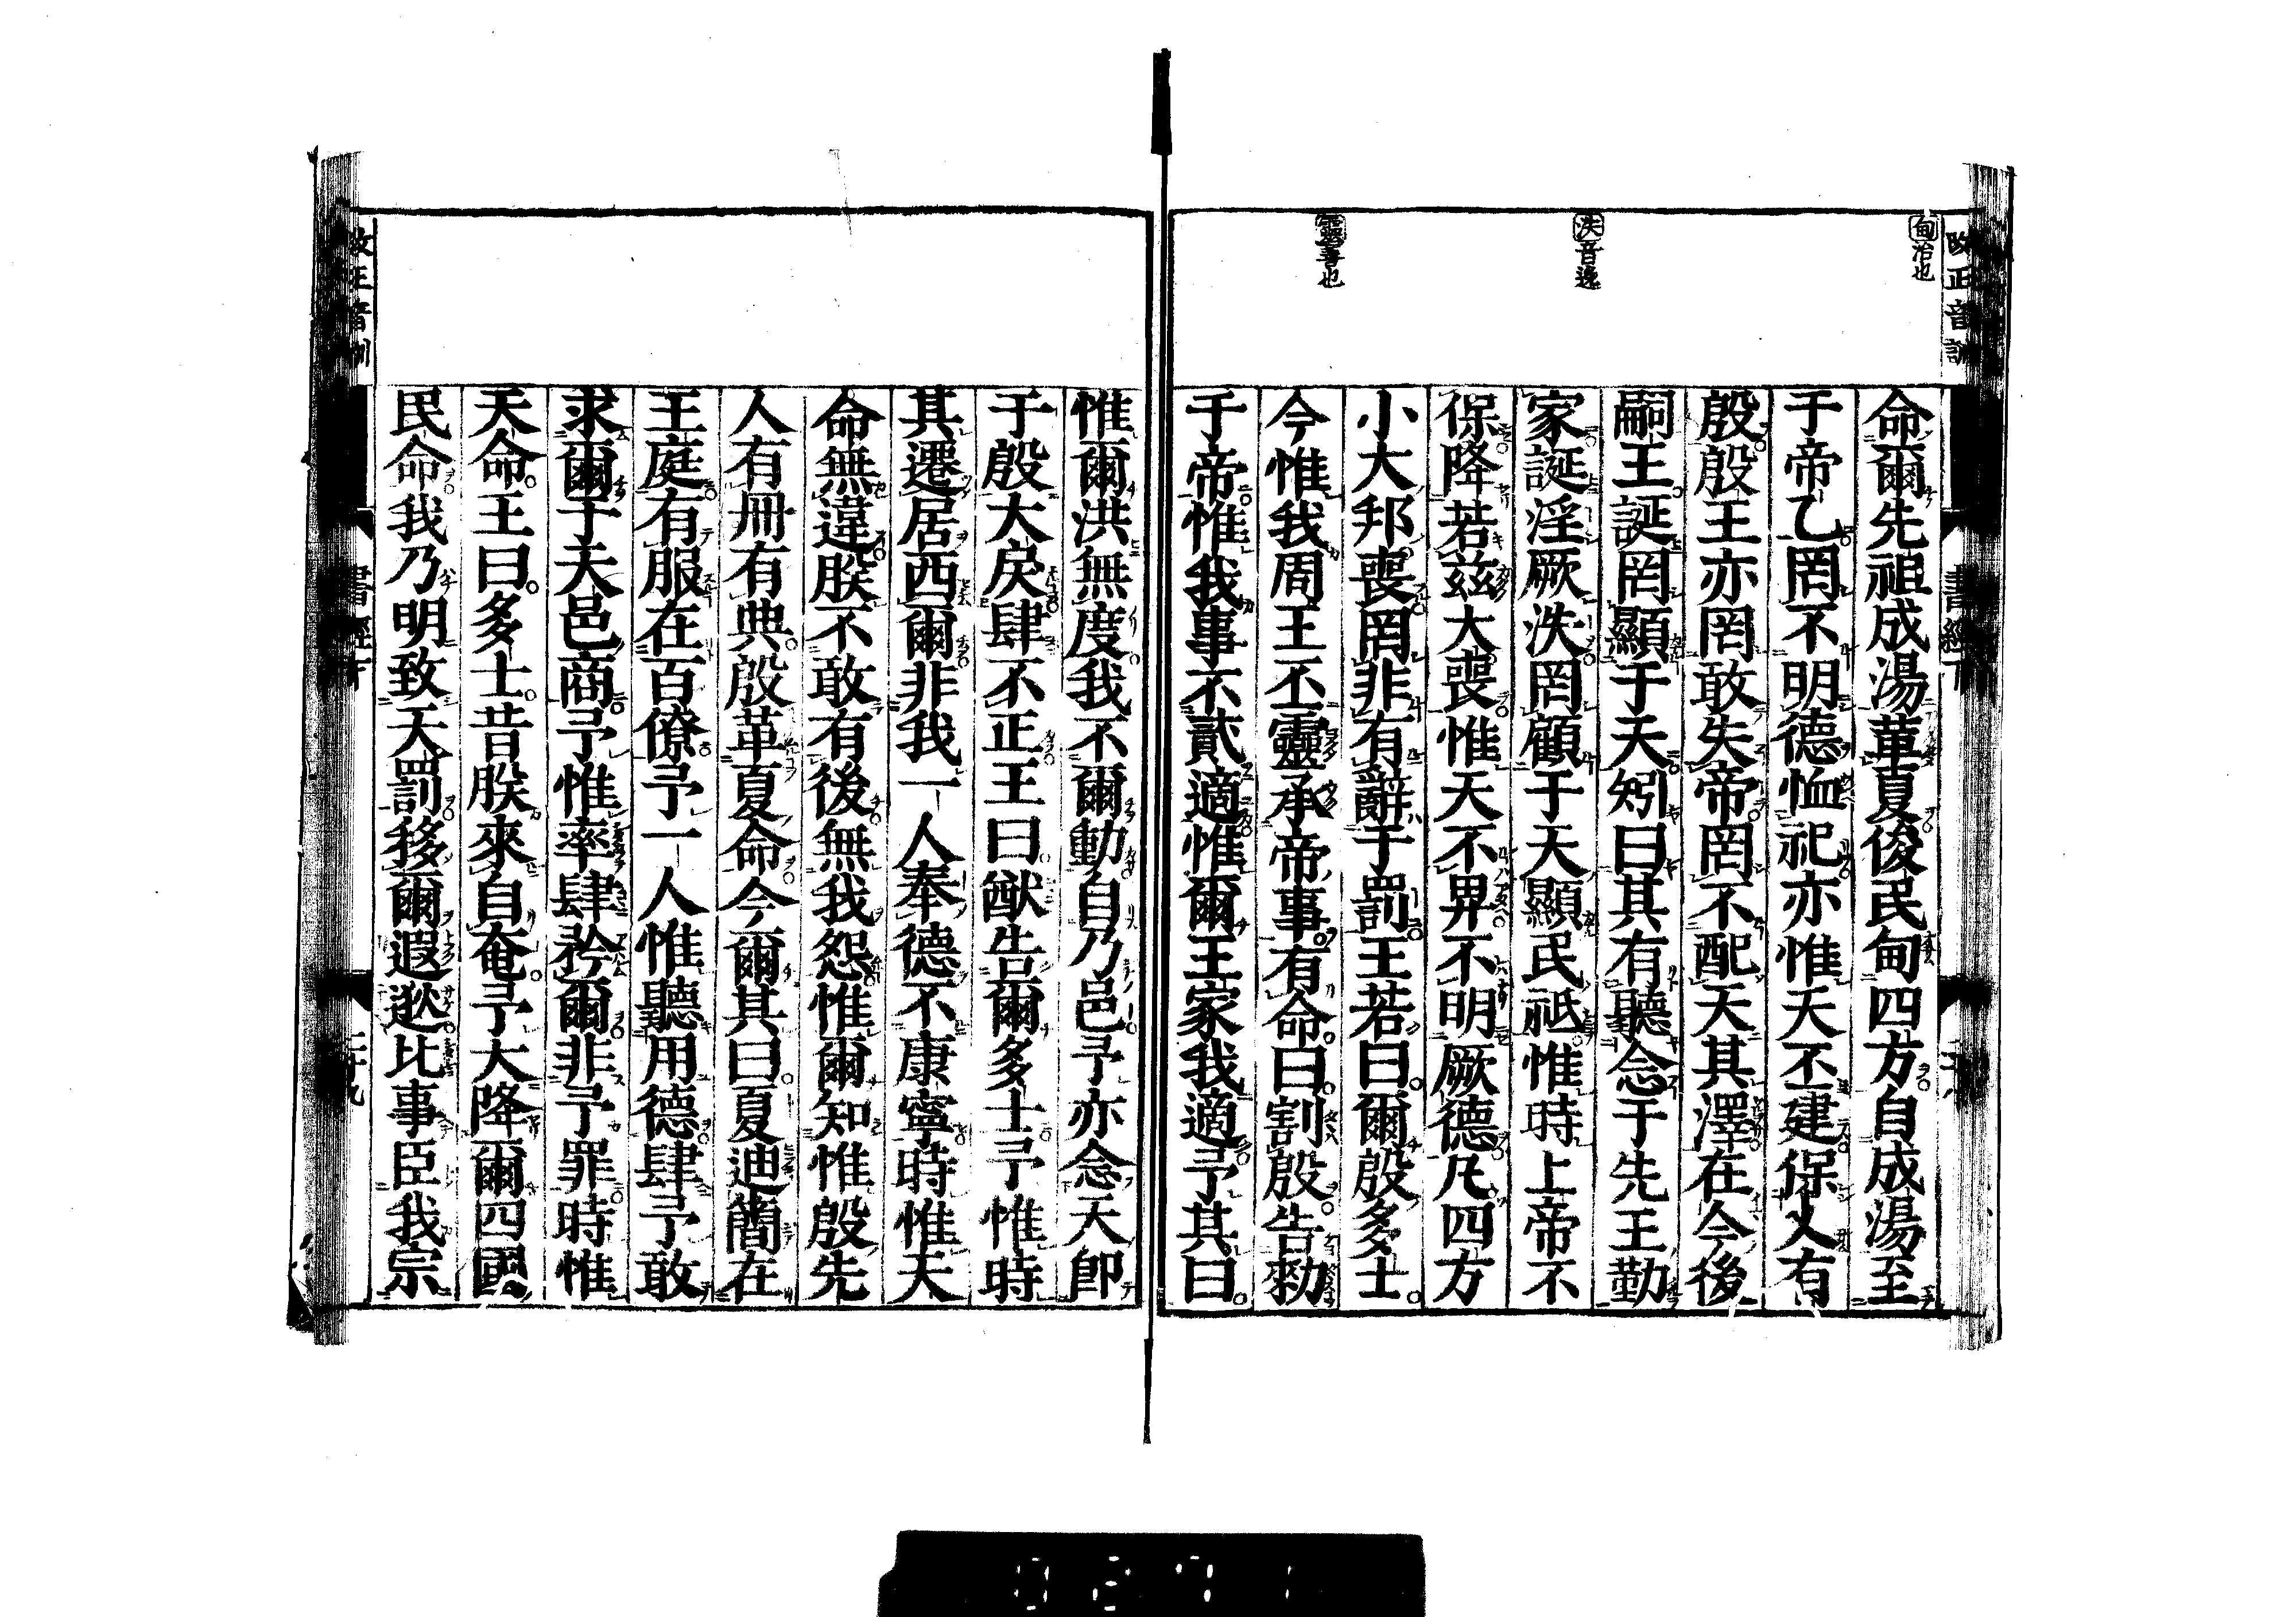 甸治也
泆音逸
靈善也
改正音訓
書經下
命爾先祖成湯革夏俊民甸四方自成湯至
于帝乙罔不明德恤祀亦惟天丕建保乂有
殷殷王亦罔敢失帝罔不配天其澤在今後
嗣王誕罔顯于天矧曰其有聽念于先王勤
家誕淫厥泆罔顧于天顯民祗惟時上帝不
保降若茲大喪惟天不畀不明厥德凡四方
小大邦喪罔非有辭于罰王若曰爾殷多士
今惟我周王丕靈承帝事有命曰割殷告勑
于帝惟我事不貳適惟爾王家我適予其曰
惟爾洪無度我不爾動自乃邑予亦念天卽
于殷大戾肆不正王曰猷告爾多士予惟時
其遷居西爾非我一人奉德不康寧時惟天
命無違朕不敢有後無我怨惟爾知惟殷先
人有冊有典殷革夏命今爾其曰夏迪簡在
王庭有服在百僚予一人惟聽用德肆予敢
求爾于天邑商予惟率肆矜爾非予罪時惟
天命王曰多士昔朕來自奄予大降爾四國
民命我乃明致天罰移爾遐逖比事臣我宗
改正音訓
書經下